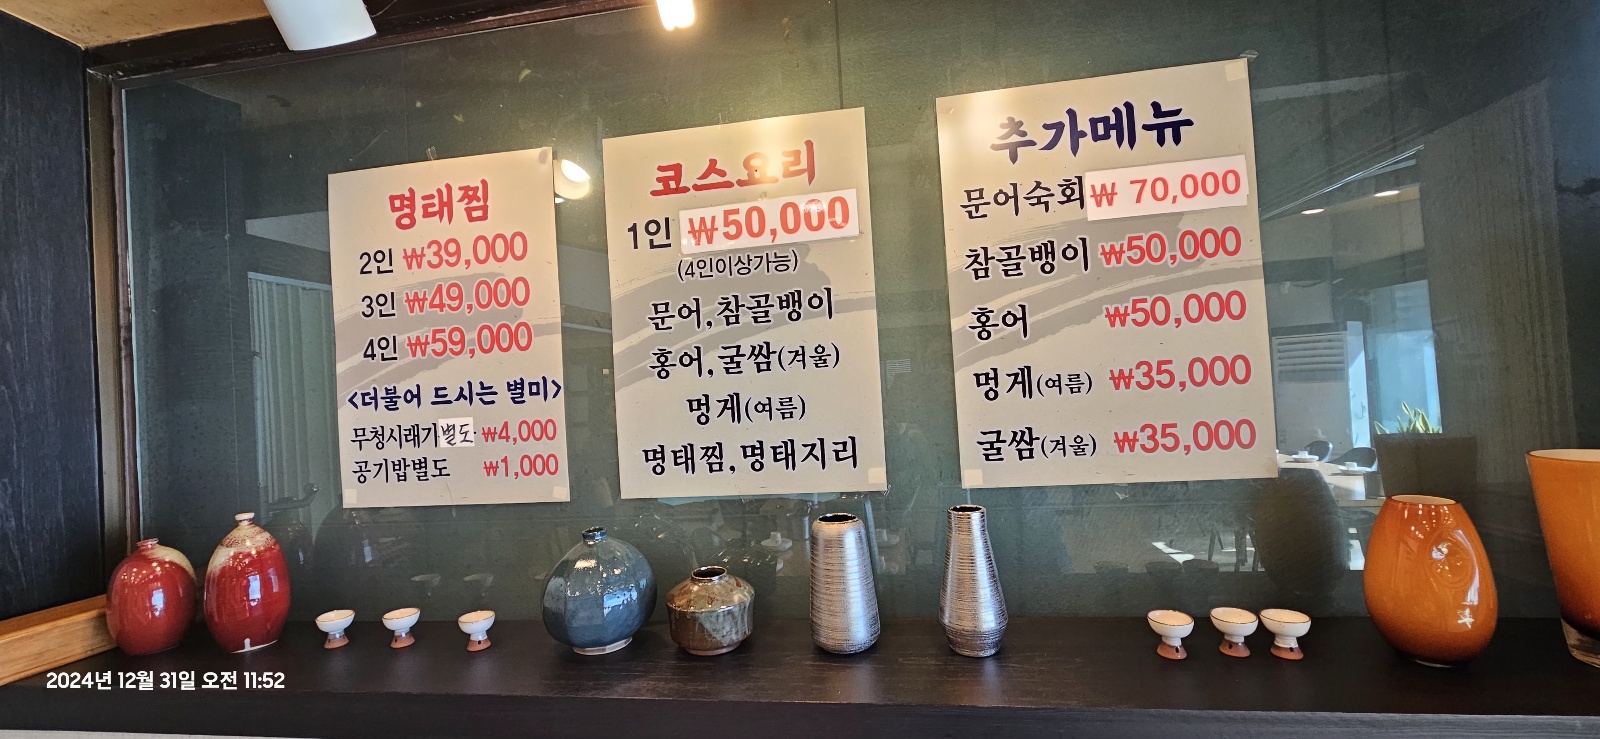 명태찜
2인 ₩39,000
3인 ₩49,000
4인 ₩59,000
<더불어 드시는 별미>
무청시래기별도 ₩4,000
공기밥별도 ₩1,000
코스요리
1인 ₩50,000
(4인이상가능)
문어,참골뱅이
홍어,굴쌈(겨울)
멍게(여름)
명태찜,명태지리
추가메뉴
문어숙회 ₩ 70,000
참골뱅이 ₩50,000
홍어 ₩50,000
멍게(여름) ₩35,000
굴쌈(겨울) ₩35,000
2024년 12월 31일 오전 11:52